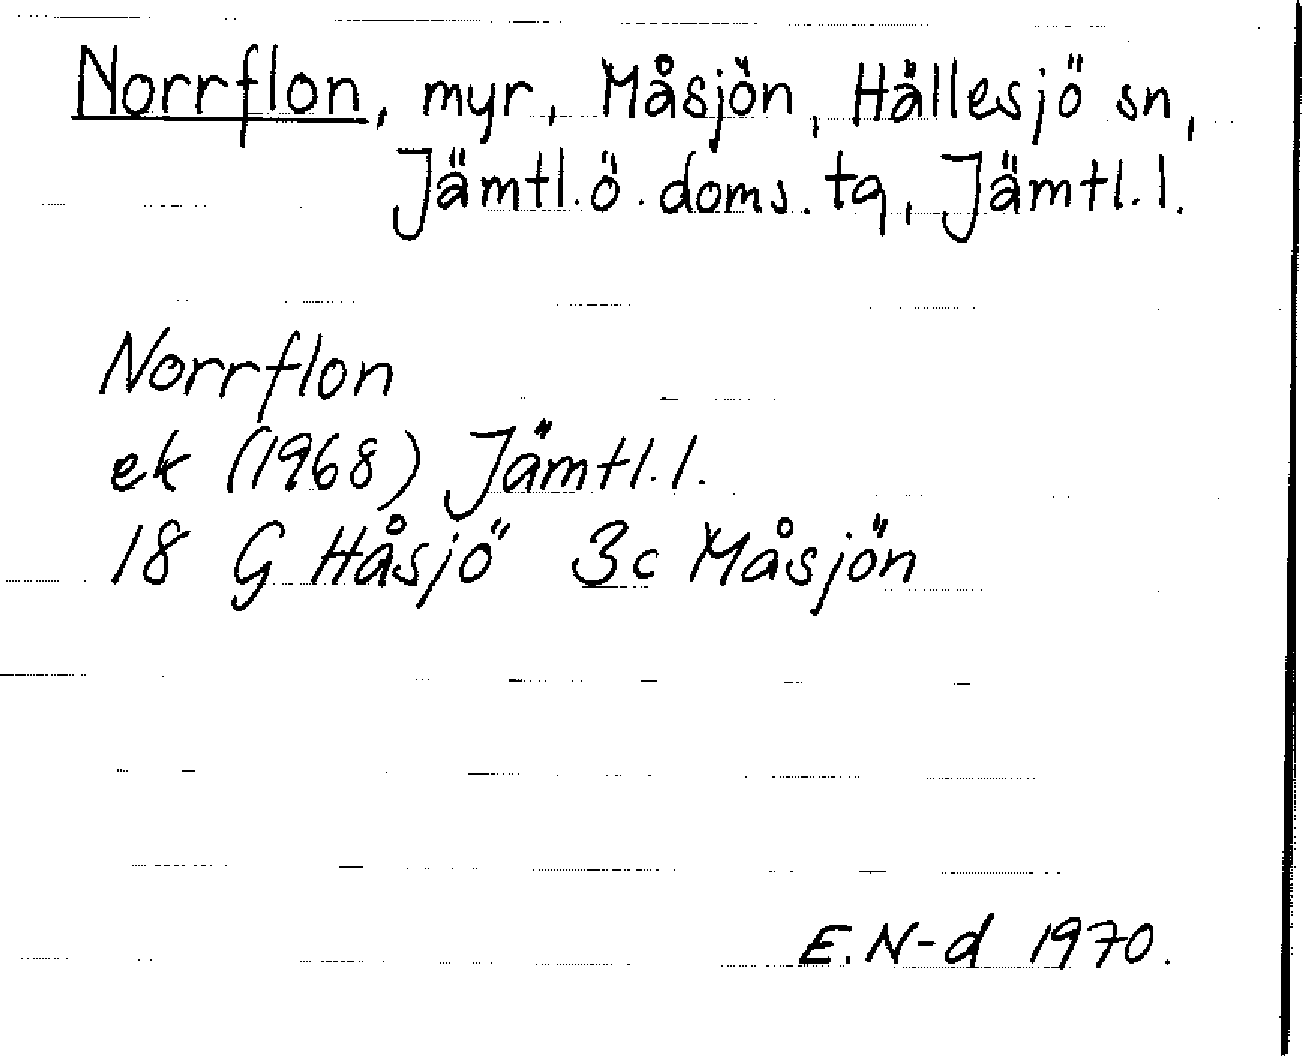 Norrflon, myr, Måsjön, Hällesjö sn,
Jämtl. ö. doms. tg, Jämtl. l.
Norrflon
ek (1968) Jämtl. l.
18 G Håsjö 3c Måsjön
E. N-d 1970.